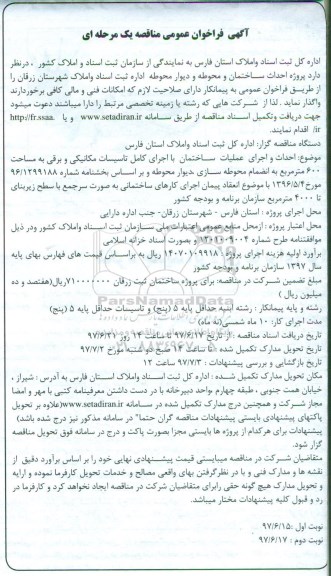 آگهی فراخوان عمومی مناقصه یک مرحله ای
اداره کل ثبت اسناد واملاک استان فارس به نمایندگی از سازمان ثبت اسناد و املاک کشور ، درنظر
دارد پروژه احداث ساختمان و محوطه و دیوار محوطه اداره ثبت اسناد واملاک شهرستان زرقان را
از طریق فراخوان عمومی به پیمانکار دارای صلاحیت لازم که امکانات فنی و مالی کافی برخوردارند
واگذار نماید . لذا از شرکت هایی که رشته یا زمینه تخصصی مرتبط را دارا میباشند دعوت میشود
جهت دریافت وتکمیل اسناد مناقصه از طریق سامانه www.setadiran.ir و یا http://fr.ssaa.
ir/ اقدام نمایند.
دستگاه مناقصه گزار: اداره کل ثبت اسناد واملاک استان فارس
موضوع: احداث و اجرای عملیات ساختمان با اجرای کامل تاسیسات مکانیکی و برقی به مساحت
۶۰۰ مترمربع به انضمام محوطه سازی ،دیوار محوطه و بر اساس بخشنامه شماره ۹۶/۱۲۹۹۱۸۸
مورخ۱۳۹۶/۵/۴ با موضوع انعقاد پیمان اجرای کارهای ساختمانی به صورت سرجمع با سطح زیربنای
تا ۴۰۰۰ مترمربع سازمان برنامه و بودجه کشور
محل اجرای پروژه : استان فارس - شهرستان زرقان- جنب اداره دارایی
محل اعتبار پروژه : ازمحل منابع عمومی اعتبارات ملی سازمان ثبت اسناد واملاک کشور ودر ذیل
موافقتنامه طرح شماره ۱۳۰۱۰۰۹۰۰۴ و بصورت اسناد خزانه اسلامی
برآورد اولیه هزینه اجرای پروژه : ۱۴۰۷۰۱۰۹۹۱۸ ریال به براساس قیمت های فهارس بهای پایه
سال ۱۳۹۷ سازمان برنامه و بودجه کشور
مبلغ تضمین شرکت در مناقصه: برای پروژه ساختمان ثبت زرقان ۷۱۰۰۰۰۰۰۰ریال(هفتصد و ده
میلیون ریال )
رشته و پایه پیمانکار : رشته ابنیه حداقل پایه ۵ (پنج) و تاسیسات حداقل پایه ۵ (پنج)
مدت اجرای کار: ۱۰ ماه شمسی(ده ماه)
تاریخ دریافت اسناد مناقصه : از تاریخ ۹۷/۶/۱۷ تا ساعت ۱۴ روز ۹۷/۶/۲۱
تاریخ تحویل مدارک تکمیل شده : تا ساعت ۱۴ صبح دو شنبه مورخ ۹۷/۷/۲
تاریخ بازگشایی و بررسی پیشنهادات : ۹۷/۷/۳ ساعت ۱۲
مکان تحویل مدارک تکمیل شده : اداره کل ثبت اسناد واملاک استان فارس به آدرس : شیراز ،
خیابان همت جنوبی ، طبقه چهارم ،واحد دبیرخانه با در دست داشتن معرفینامه کتبی با مهر و امضا
مجاز شرکت و همچنین درج مدارک تکمیل شده در سامانه www.setadiran.ir(علاوه بر تحویل
پاکتهای پیشنهادی بایستی پیشنهادات مناقصه گران حتما" در سامانه مذکور نیز درج شده باشد)
پیشنهادات برای هرکدام از پروژه ها بایستی مجزا بصورت پاکت و درج در سامانه فوق تحویل مناقصه
گزار شود.
متقاضیان شرکت در مناقصه میبایستی قیمت پیشنهادی نهایی خود را بر اساس برآورد دقیق از
نقشه ها و مدارک فنی و با در نظرگرفتن بهای واقعی مصالح و خدمات تحویل کارفرما نموده و ارایه
و تحویل مدارک هیچ گونه حقی رابرای متقاضیان شرکت در مناقصه ایجاد نخواهد کرد و کارفرما در
رد و قبول کلیه پیشنهادات مختار میباشد.
نوبت اول :۹۷/۶/۱۵
نوبت دوم : ۹۷/۶/۱۷